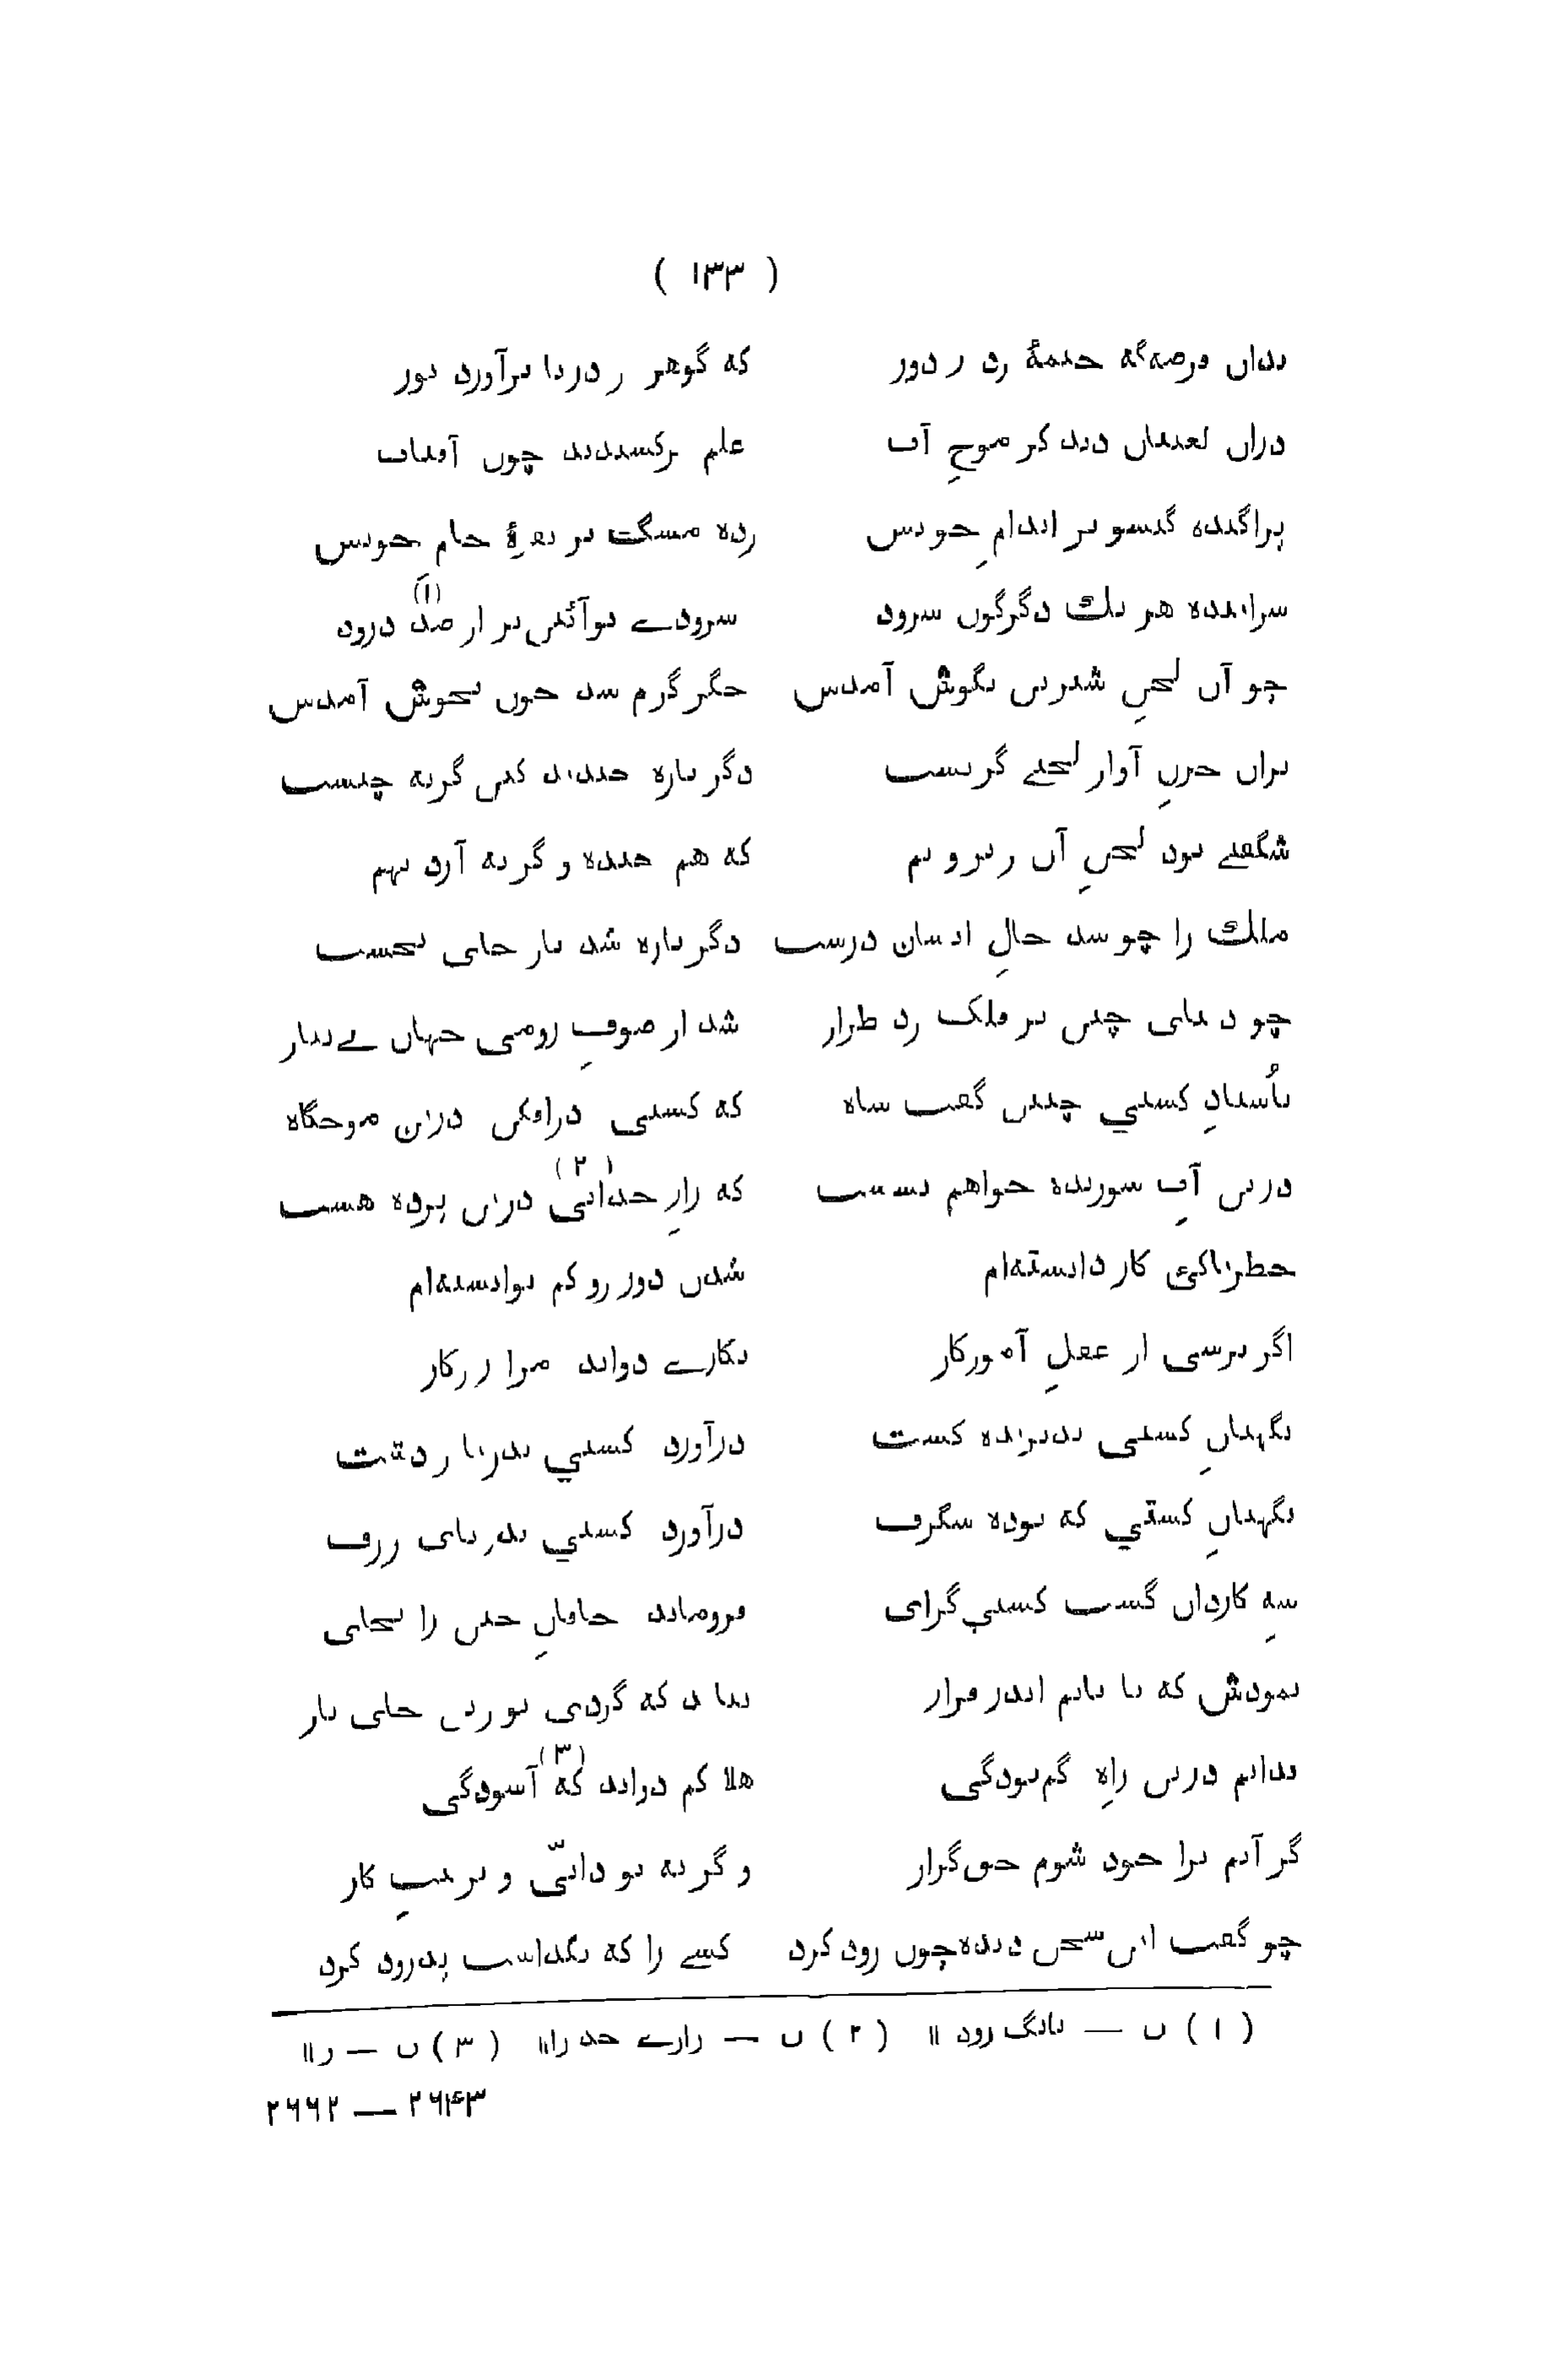 ( ۱۳۳ )
بداں فرضه‌گه خیمهٔ زد ز دور که گوهر ز دریا برآورد نور
دراں لعبتاں دید کز موجِ آب علم برکشیدند چوں آفتاب
پراگنده گیسو بر اندامِ خویش زده مشک بر نقرهٔ خام خویش
سراینده هر یک دگرگوں سرود سرودے نوآئیں‌تر از صد (۱) درود
چو آں لحنِ شیریں بگوش آمدش جگر گرم شد خوں بجوش آمدش
براں حزنِ آواز لختے گریست دگر باره خندید کیں گریه چیست
شگفتے بود لحنِ آں زیر و بم که هم خنده و گریه آرد بهم
ملک را چو شد حالِ ایشان درست دگر باره شد باز جای نخست
چو دیبای چیں بر فلک زد طراز شد از صوفِ رومی جهاں بے‌نیاز
باُستادِ کشتي چنیں گفت شاه که کشتی درافگن دریں موجگاه
دریں آبِ شوریده خواهم نشست که رازِ خدائی (۲) دریں پرده هست
خطرناکئ کار دانسته‌ام شدں دور زو کم توانسته‌ام
اگر پرسی از عقلِ آموزگار بکارے دواند مرا روزگار
نگهبانِ کشتی پذیرنده گشت درآورد کشتي بدریا ز دشت
نگهباںِ کشتي که بوده شگرف درآورد کشتي بدریای ژرف
شهِ کارداں گشت کشتي‌گرای فروماند خاقانِ چیں را بجای
نمودش که تا نایم اندر فراز نباید که گردی تو زیں جای باز
ندانم دریں راهِ گم‌بودگی هلاکم دواند که (۳) آسودگی
گر آیم ترا خود شوم حق‌گزار و گر نه تو دانیّ و ترتیبِ کار
چو گفت ایں سخن دیده چوں رود کرد کسے را که نگذاشت پدرود کرد
(۱) ں — بانگ رود ॥ (۲) ں — رازے خدا را ॥ (۳) ں — ز ॥
۲۶۴۳ — ۲۶۶۲